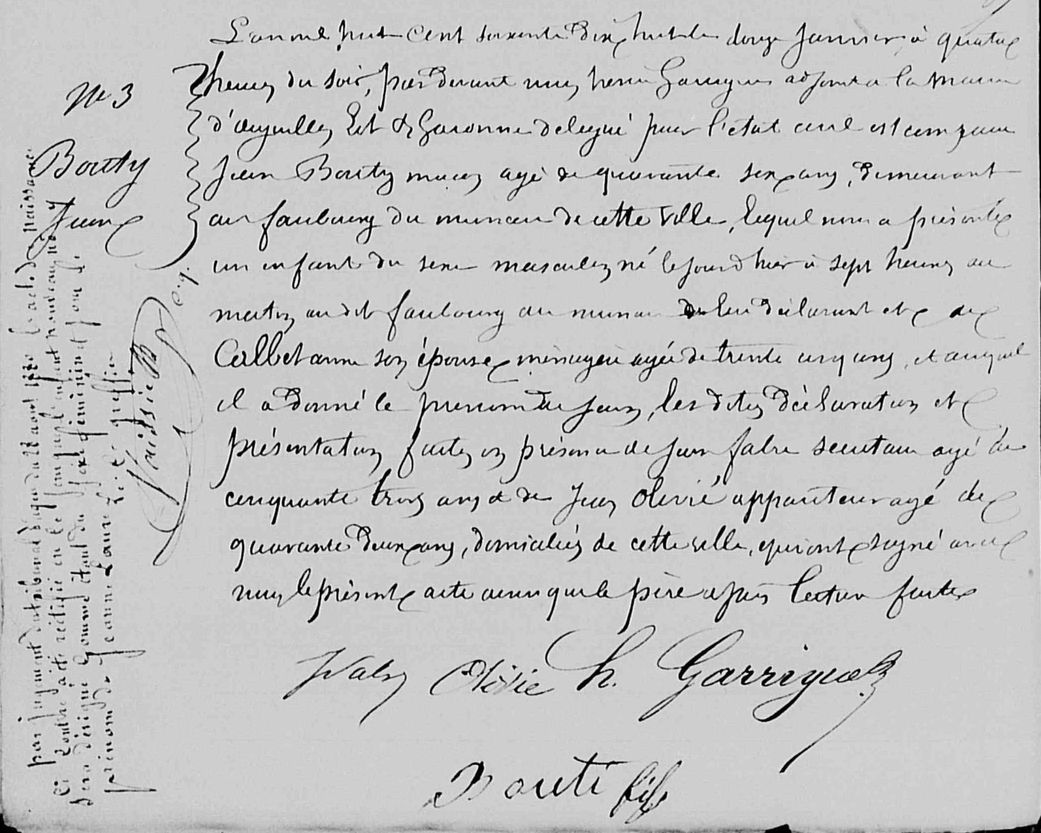 N° 3
Bouty
Jean
L'an mil huit cent soixante dix huit le douze Janvier à quatre
heures du soir, par devant nous henri Garrigues adjoint à la Mairie
d'aiguillon Lot & Garonne delegué pour l'état civil est comparu
Jean Bouty maçon agé de quarante six ans, demeurant
au faubourg du muneau de cette ville, lequel nous a présenté
un enfant du sexe masculin né le jour d'hier à sept heures du
matin au dit faubourg du muneau de lui déclarant et de
Calbet anne son épouse ménagère agée de trente cinq ans, et auquel
il a donné le prenom de Jean, les dites déclaration et
présentation faites en présence de Jean fabre secretaire agé de
cinquante trois ans et de Jean Olivié appariteur agé de
quarante deux ans, domiciliés de cette ville, qui ont signé avec
nous le présent acte ainsi que le père après lecture faite
Olivié h. Garrigues
Bouti fils
par jugement du tribunal d'agen du 22 aout 1890 l'acte de naissance
ci contre a été rectifié en ce sens que l'enfant nouveau né y
sera désigné comme étant du sexe féminin et sous le
prénom de Jeanne Laure. Le C. greffier
Vaissière sig.